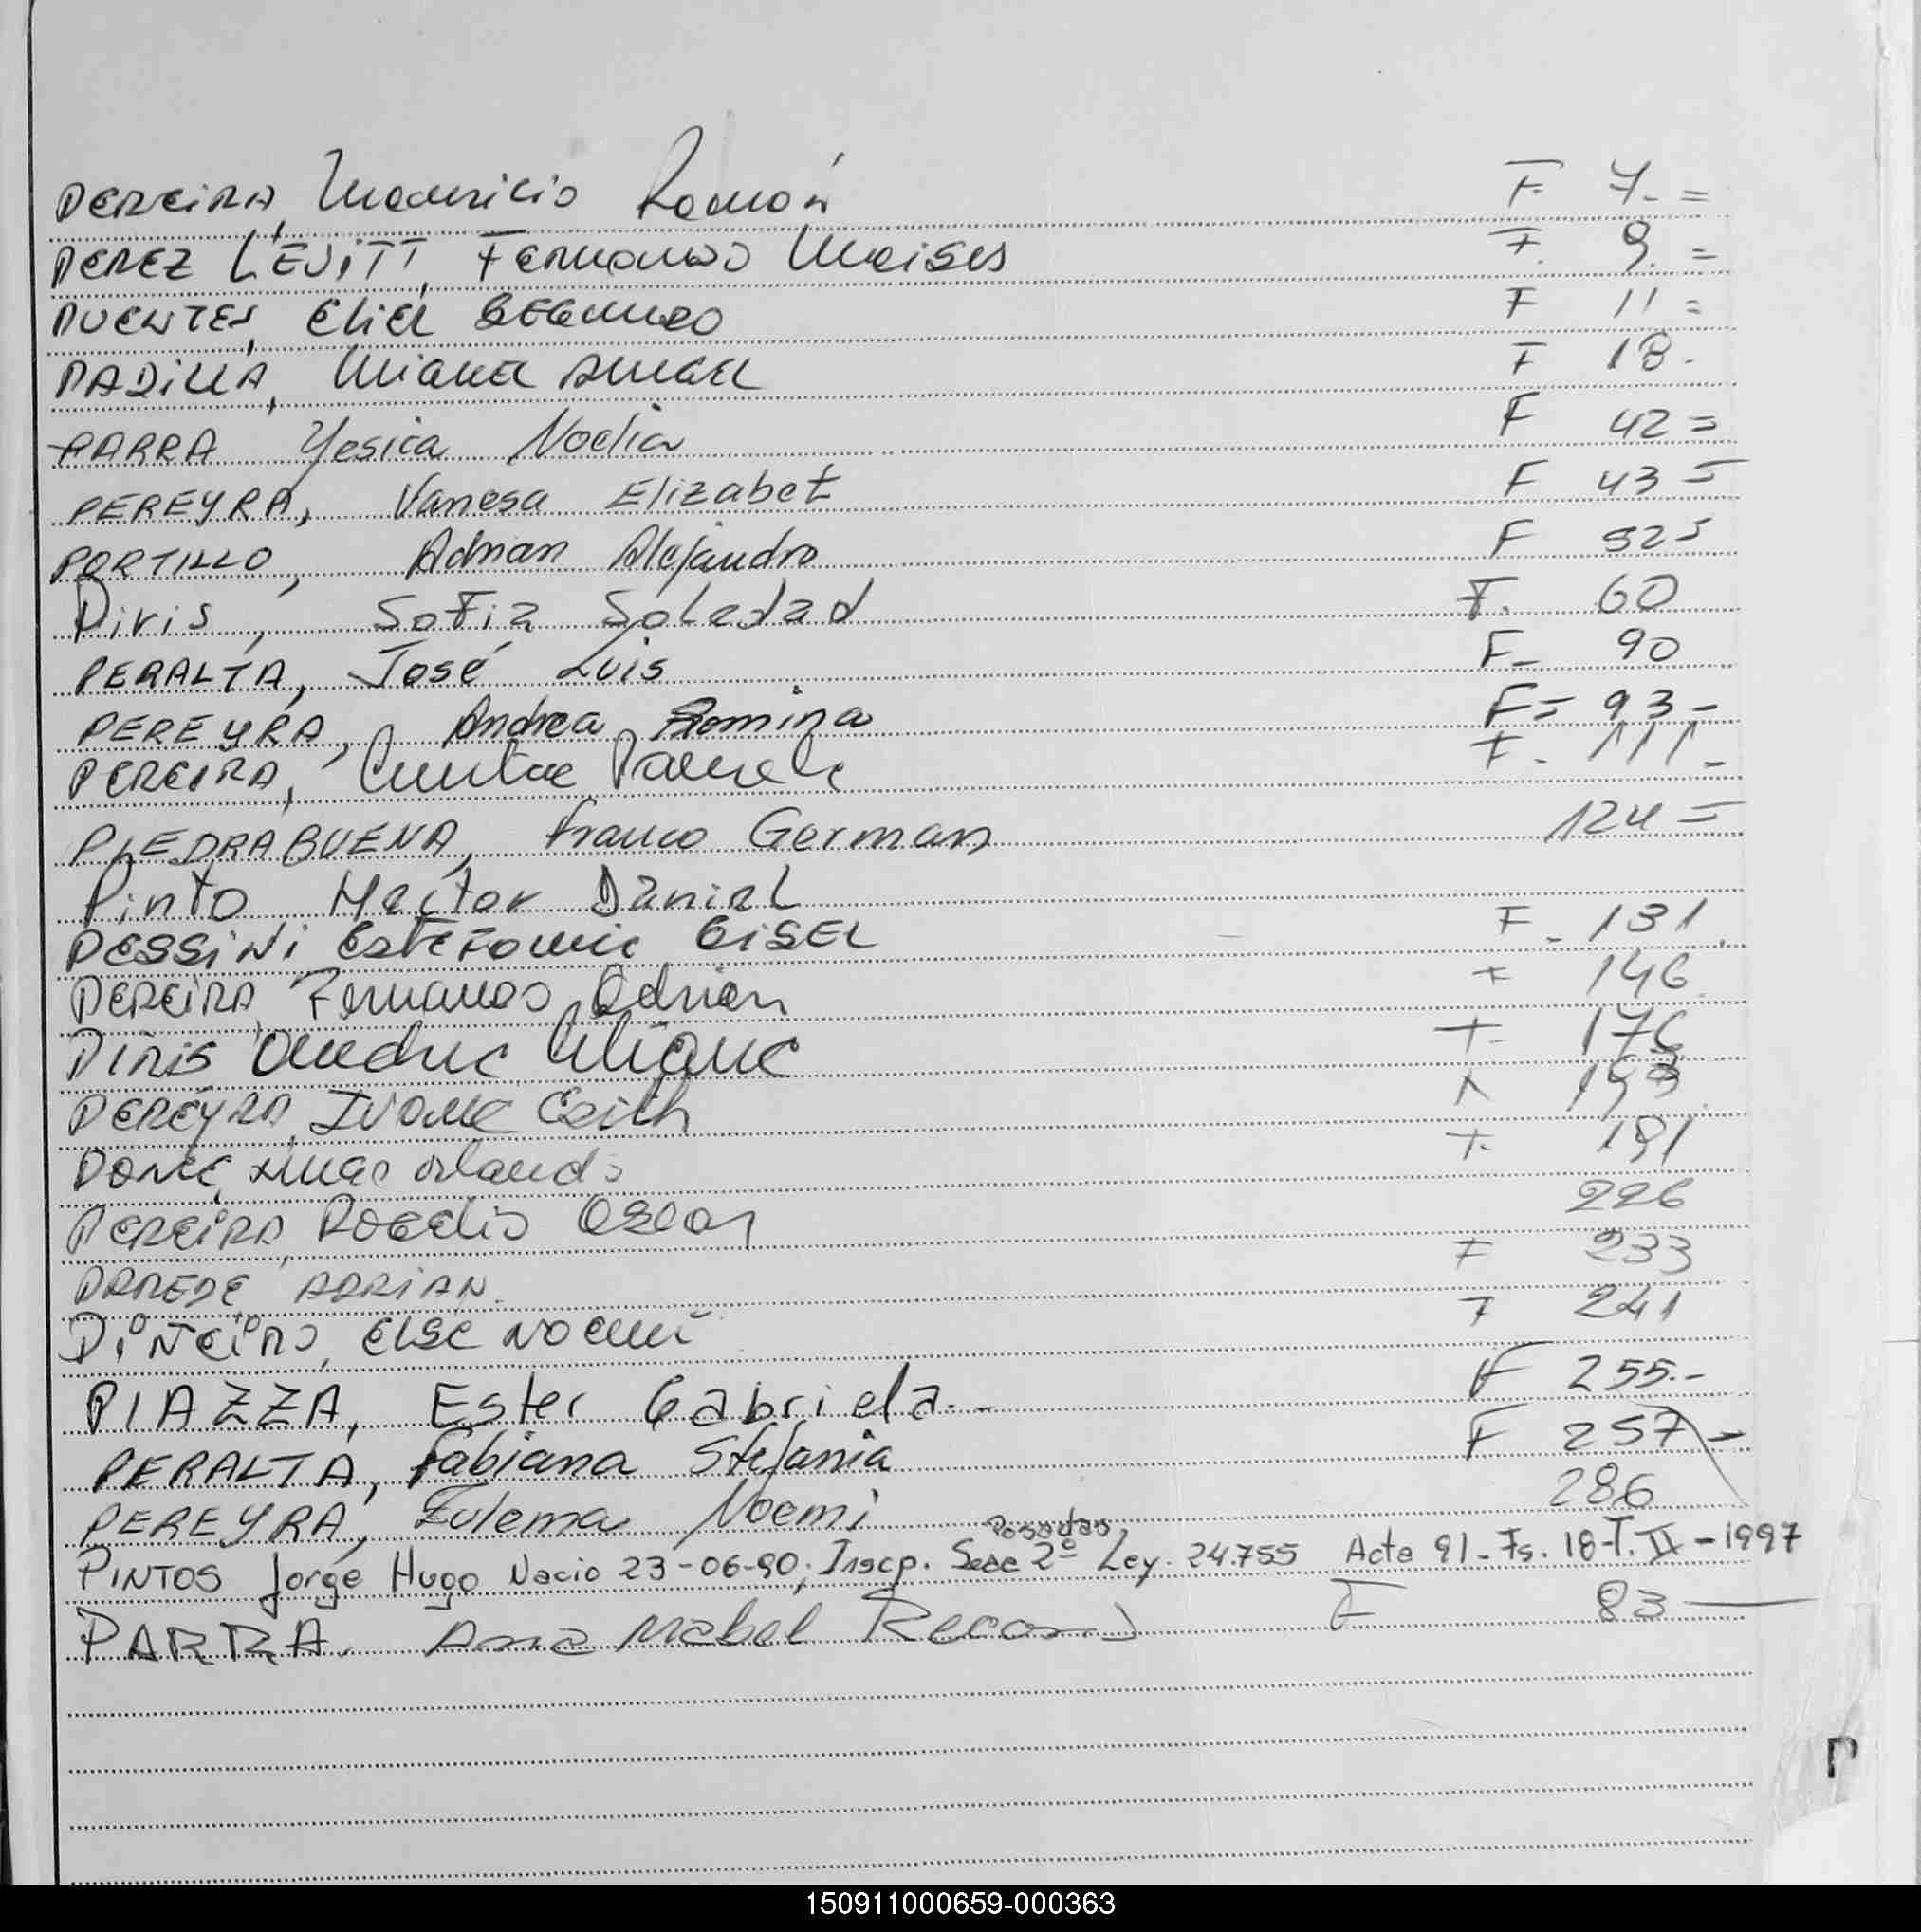 PEREIRA, Mauricio Ramón F. 7.=
PEREZ LEVITT, Fernando Moises F. 9.=
PUENTES, Eliel SEGUNDO F 11=
PADILLA, Miguel ANGEL F 18.
PARRA Yesica Noelia F 42=
PEREYRA, Vanesa Elizabet F 43=
PORTILLO, Adrian Alejandro F 52=
Piris, Sofia Soledad F. 60
PERALTA, José Luis F- 90
PEREYRA, Andrea Romina F= 93-
PEREIRA, Pamela F- 111-
PIEDRABUENA, Franco German 124=
Pinto Hector Daniel
PESSINI Estefania GISEL F- 131.
PEREIRA, Fernando Adrian F 146.
PIRIS 176
PEREYRA, Ivone Edith
PONCE, Lucas Orlando F. 191
PEREIRA, Rogelio Oscar 226
ADRIAN. F 233
PIÑEIRO, ELSE NOEMI F 241
PIAZZA, Ester Gabriela.- F 255.-
PERALTA, Fabiana Stefania F 257-
PEREYRA, Zulema Noemi 286
Posadas
PINTOS Jorge Hugo Nacio 23-06-90; Inscp. Secc 2º Ley. 24.755 Acta 91-Fs. 18-T. II-1997
PARRA. Ana Mabel F 83
P
150911000659-000363